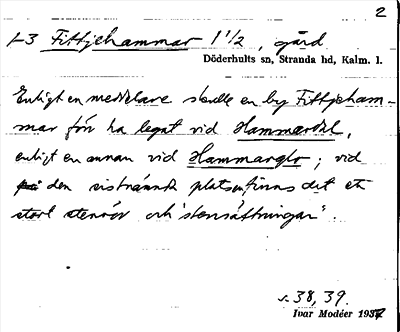 2
1-3 Fittjehammar 1 1/2, gård
Döderhults sn, Stranda hd, Kalm. l.
Enligt en meddelare skulle en by Fittjeham-
mar förr ha legat vid Hammardal,
enligt en annan vid Hammarglo; vid
den sistnämnda platsen finns det ett
stort stenrös och "stensättningar".
s. 38, 39.
Ivar Modéer 1937